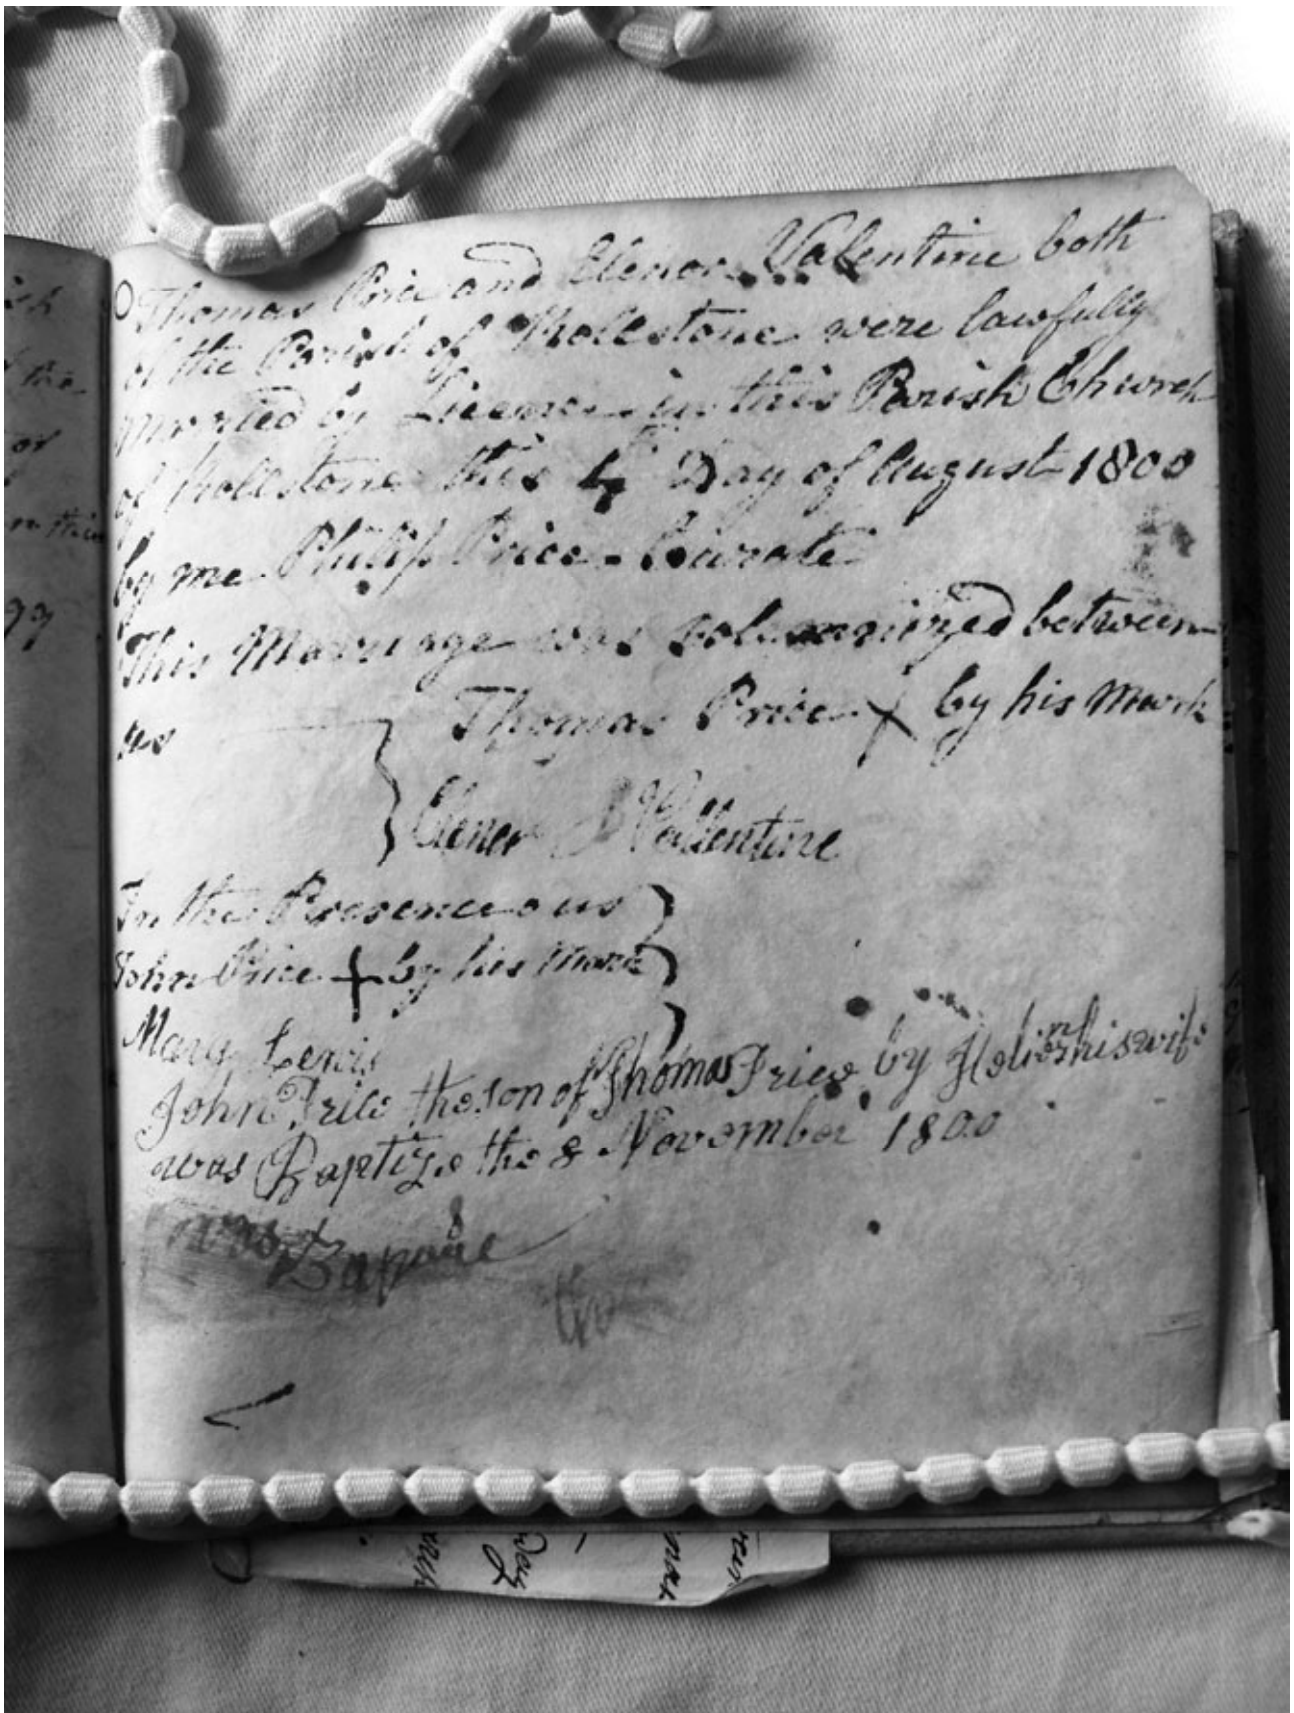 Thomas Price and Elenor Valentine both
of the Parish of Rollestone were lawfully
Married by Licence in this Parish Church
of Rollestone this 4th Day of August 1800
by me Philip Price - Curate
This Marriage was solemanized between
us Thomas Price X by his Mark
Elener Vallentine
In the Presence o us
John Price + by his Mark
Mary Lewis
John Price the son of Thomas Price by his wife
was Baptize the 8 November 1800
was